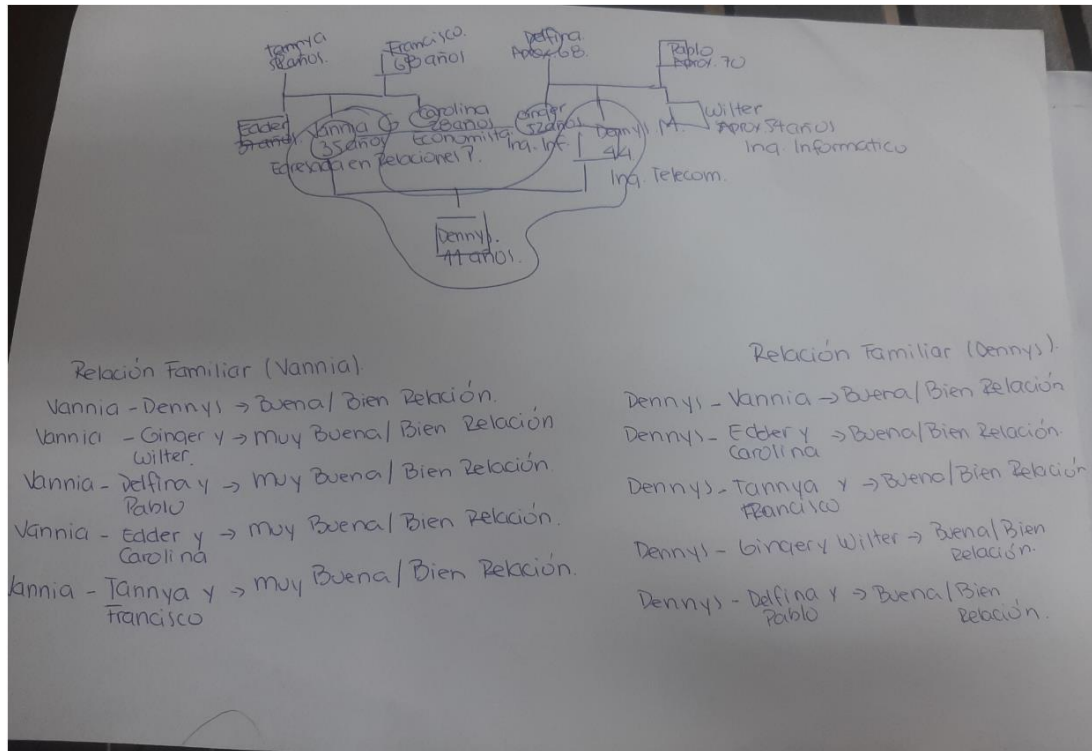 Tannya
58 años.
Francisco.
68 años
Delfina.
Aprox. 68.
Pablo
Aprox. 70
Edder
años.
Vannia
35 años
Egresada en Relaciones P.
Carolina
28 años
Economista.
Ginger
52 años
Ing. Inf.
Dennys. M.
44
Ing. Telecom.
Wilter
Aprox. 54 años
Ing. Informatico
Dennys.
11 años.
Relación Familiar (Vannia)
Vannia - Dennys → Buena/ Bien Relación.
Vannia - Ginger y → muy Buena/ Bien Relación
Wilter.
Vannia - Delfina y → muy Buena/ Bien Relación
Pablo
Vannia - Edder y → muy Buena/ Bien Relación.
Carolina
Vannia - Tannya y → muy Buena/ Bien Relación.
Francisco
Relación Familiar (Dennys).
Dennys - Vannia → Buena/Bien Relación
Dennys - Edder y → Buena/Bien Relación.
Carolina
Dennys - Tannya y → Buena/Bien Relación
Francisco
Dennys - Ginger y Wilter → Buena/Bien
Relación.
Dennys - Delfina y → Buena/Bien
Pablo Relación.